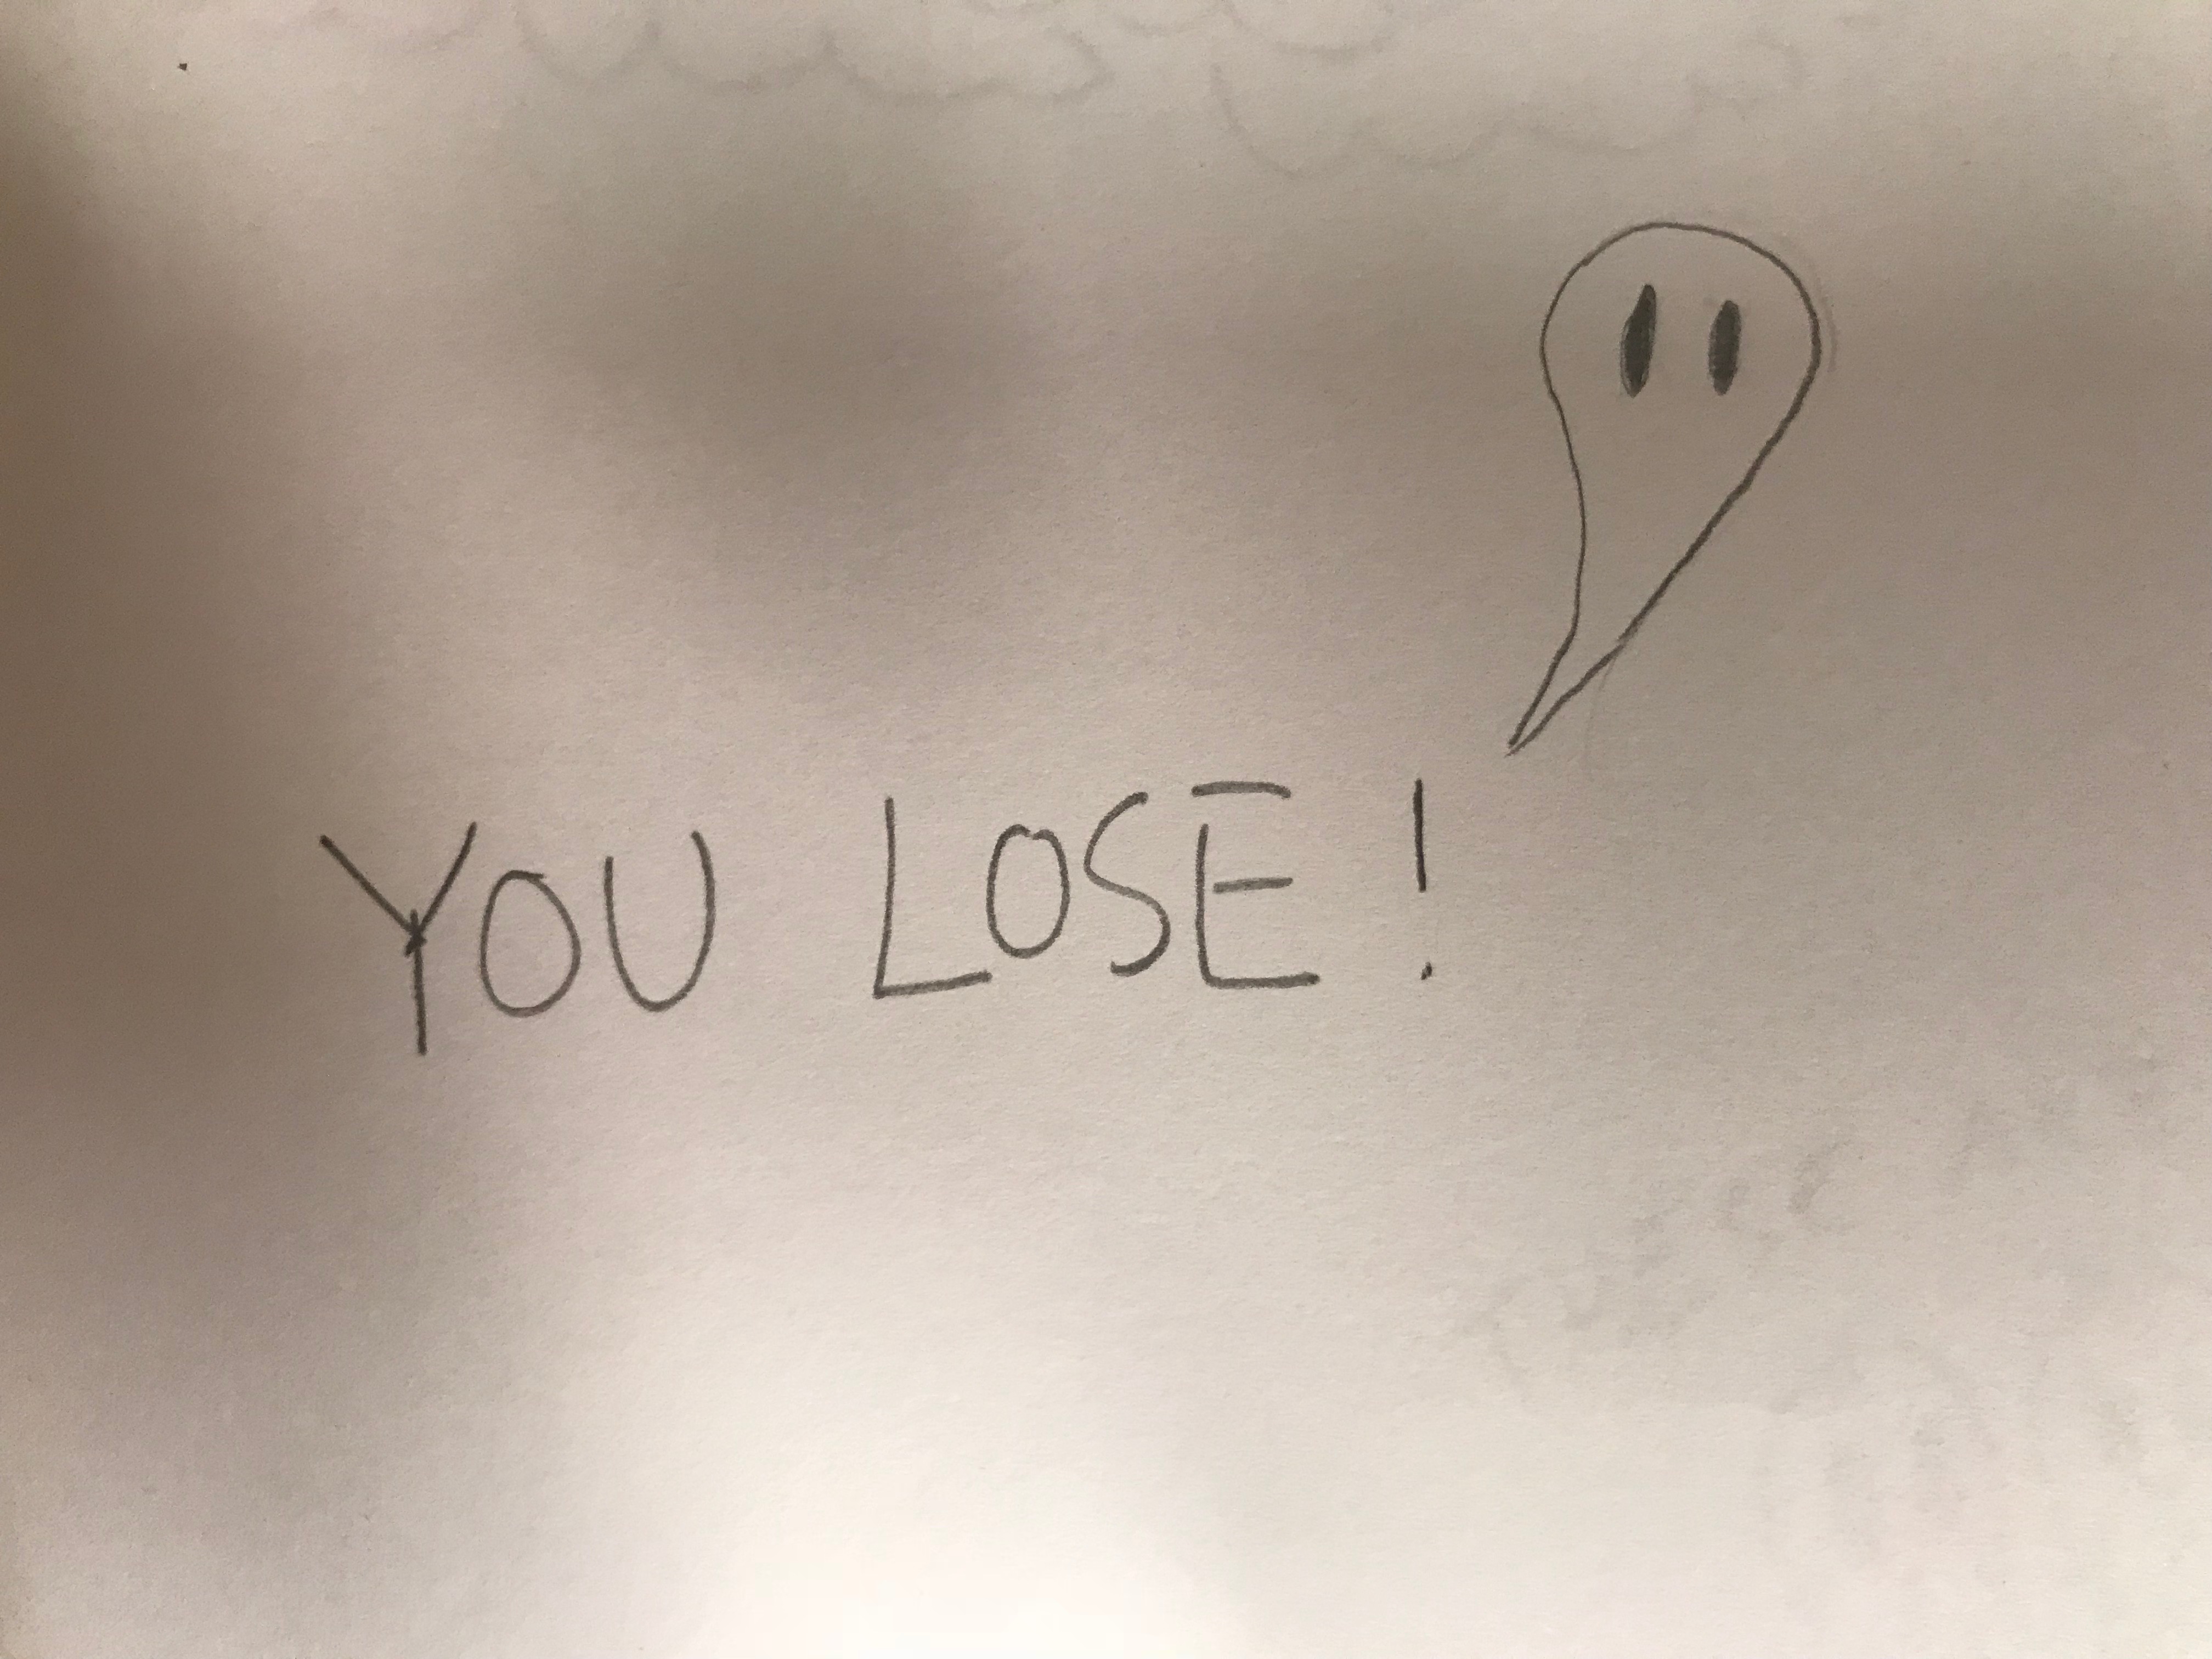 YOU LOSE!